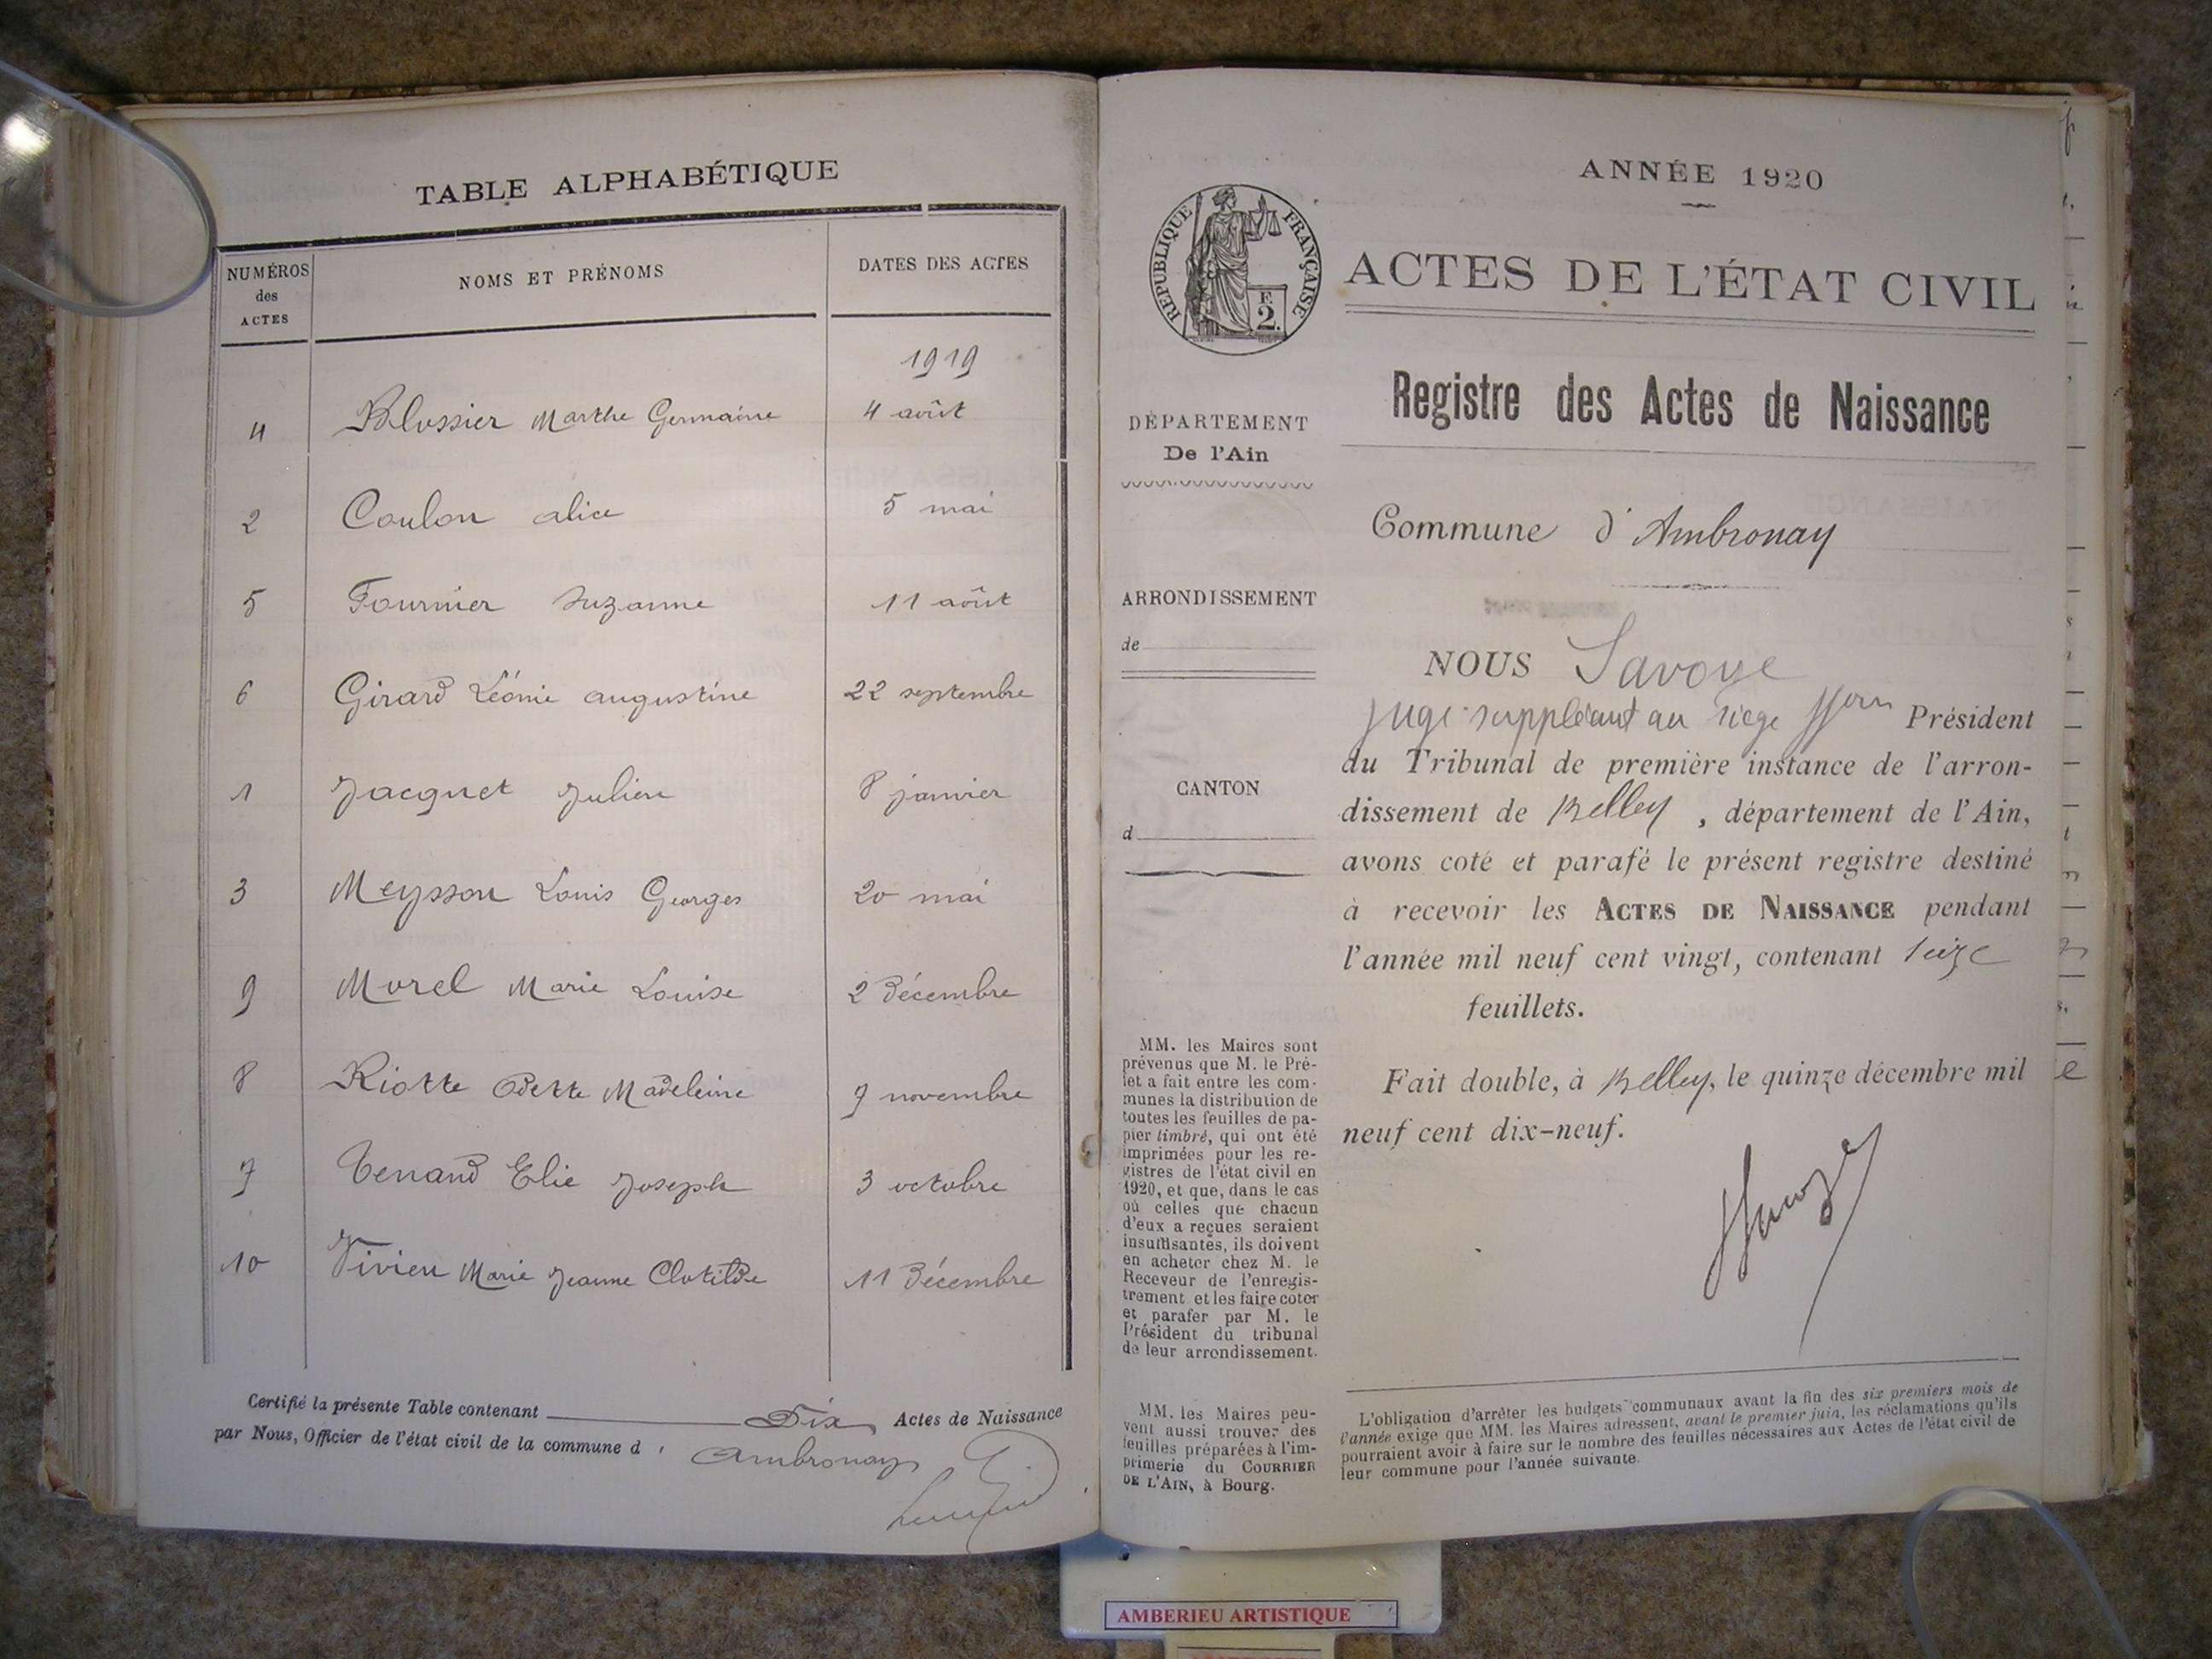 TABLE ALPHABÉTIQUE
NUMÉROS des ACTES
NOMS ET PRÉNOMS
DATES DES ACTES
1919
4 Blossier Marthe Germaine 4 août
2 Coulon alice 5 mai
5 Fournier Suzanne 11 août
6 Girard Léonie augustine 22 septembre
1 Jacquet Julien 8 janvier
3 Meysson Louis Georges 20 mai
9 Morel Marie Louise 2 Décembre
8 Riotte Odette Madeleine 7 novembre
7 Tenand Elie Joseph 3 octobre
10 Vivien Marie Jeanne Clotilde 11 Décembre
Certifié la présente Table contenant Dix Actes de Naissance
par Nous, Officier de l'état civil de la commune d' Ambronay
ANNÉE 1920
RÉPUBLIQUE FRANÇAISE
F.
2.
ACTES DE L'ÉTAT CIVIL
Registre des Actes de Naissance
DÉPARTEMENT
De l'Ain
Commune d'Ambronay
ARRONDISSEMENT
de
CANTON
d
NOUS Savoye
juge suppléant au siège Président
du Tribunal de première instance de l'arron-
dissement de Belley, département de l'Ain,
avons coté et parafé le présent registre destiné
à recevoir les ACTES DE NAISSANCE pendant
l'année mil neuf cent vingt, contenant seize
feuillets.
Fait double, à Belley, le quinze décembre mil
neuf cent dix-neuf.
MM. les Maires sont
prévenus que M. le Pré-
fet a fait entre les com-
munes la distribution de
toutes les feuilles de pa-
pier timbré, qui ont été
imprimées pour les re-
gistres de l'état civil en
1920, et que, dans le cas
où celles que chacun
d'eux a reçues seraient
insuffisantes, ils doivent
en acheter chez M. le
Receveur de l'enregis-
trement et les faire coter
et parafer par M. le
Président du tribunal
de leur arrondissement.
MM. les Maires peu-
vent aussi trouver des
feuilles préparées à l'im-
primerie du COURRIER
DE L'AIN, à Bourg.
L'obligation d'arrêter les budgets communaux avant la fin des six premiers mois de
l'année exige que MM. les Maires adressent, avant le premier juin, les réclamations qu'ils
pourraient avoir à faire sur le nombre des feuilles nécessaires aux Actes de l'état civil de
leur commune pour l'année suivante.
AMBERIEU ARTISTIQUE